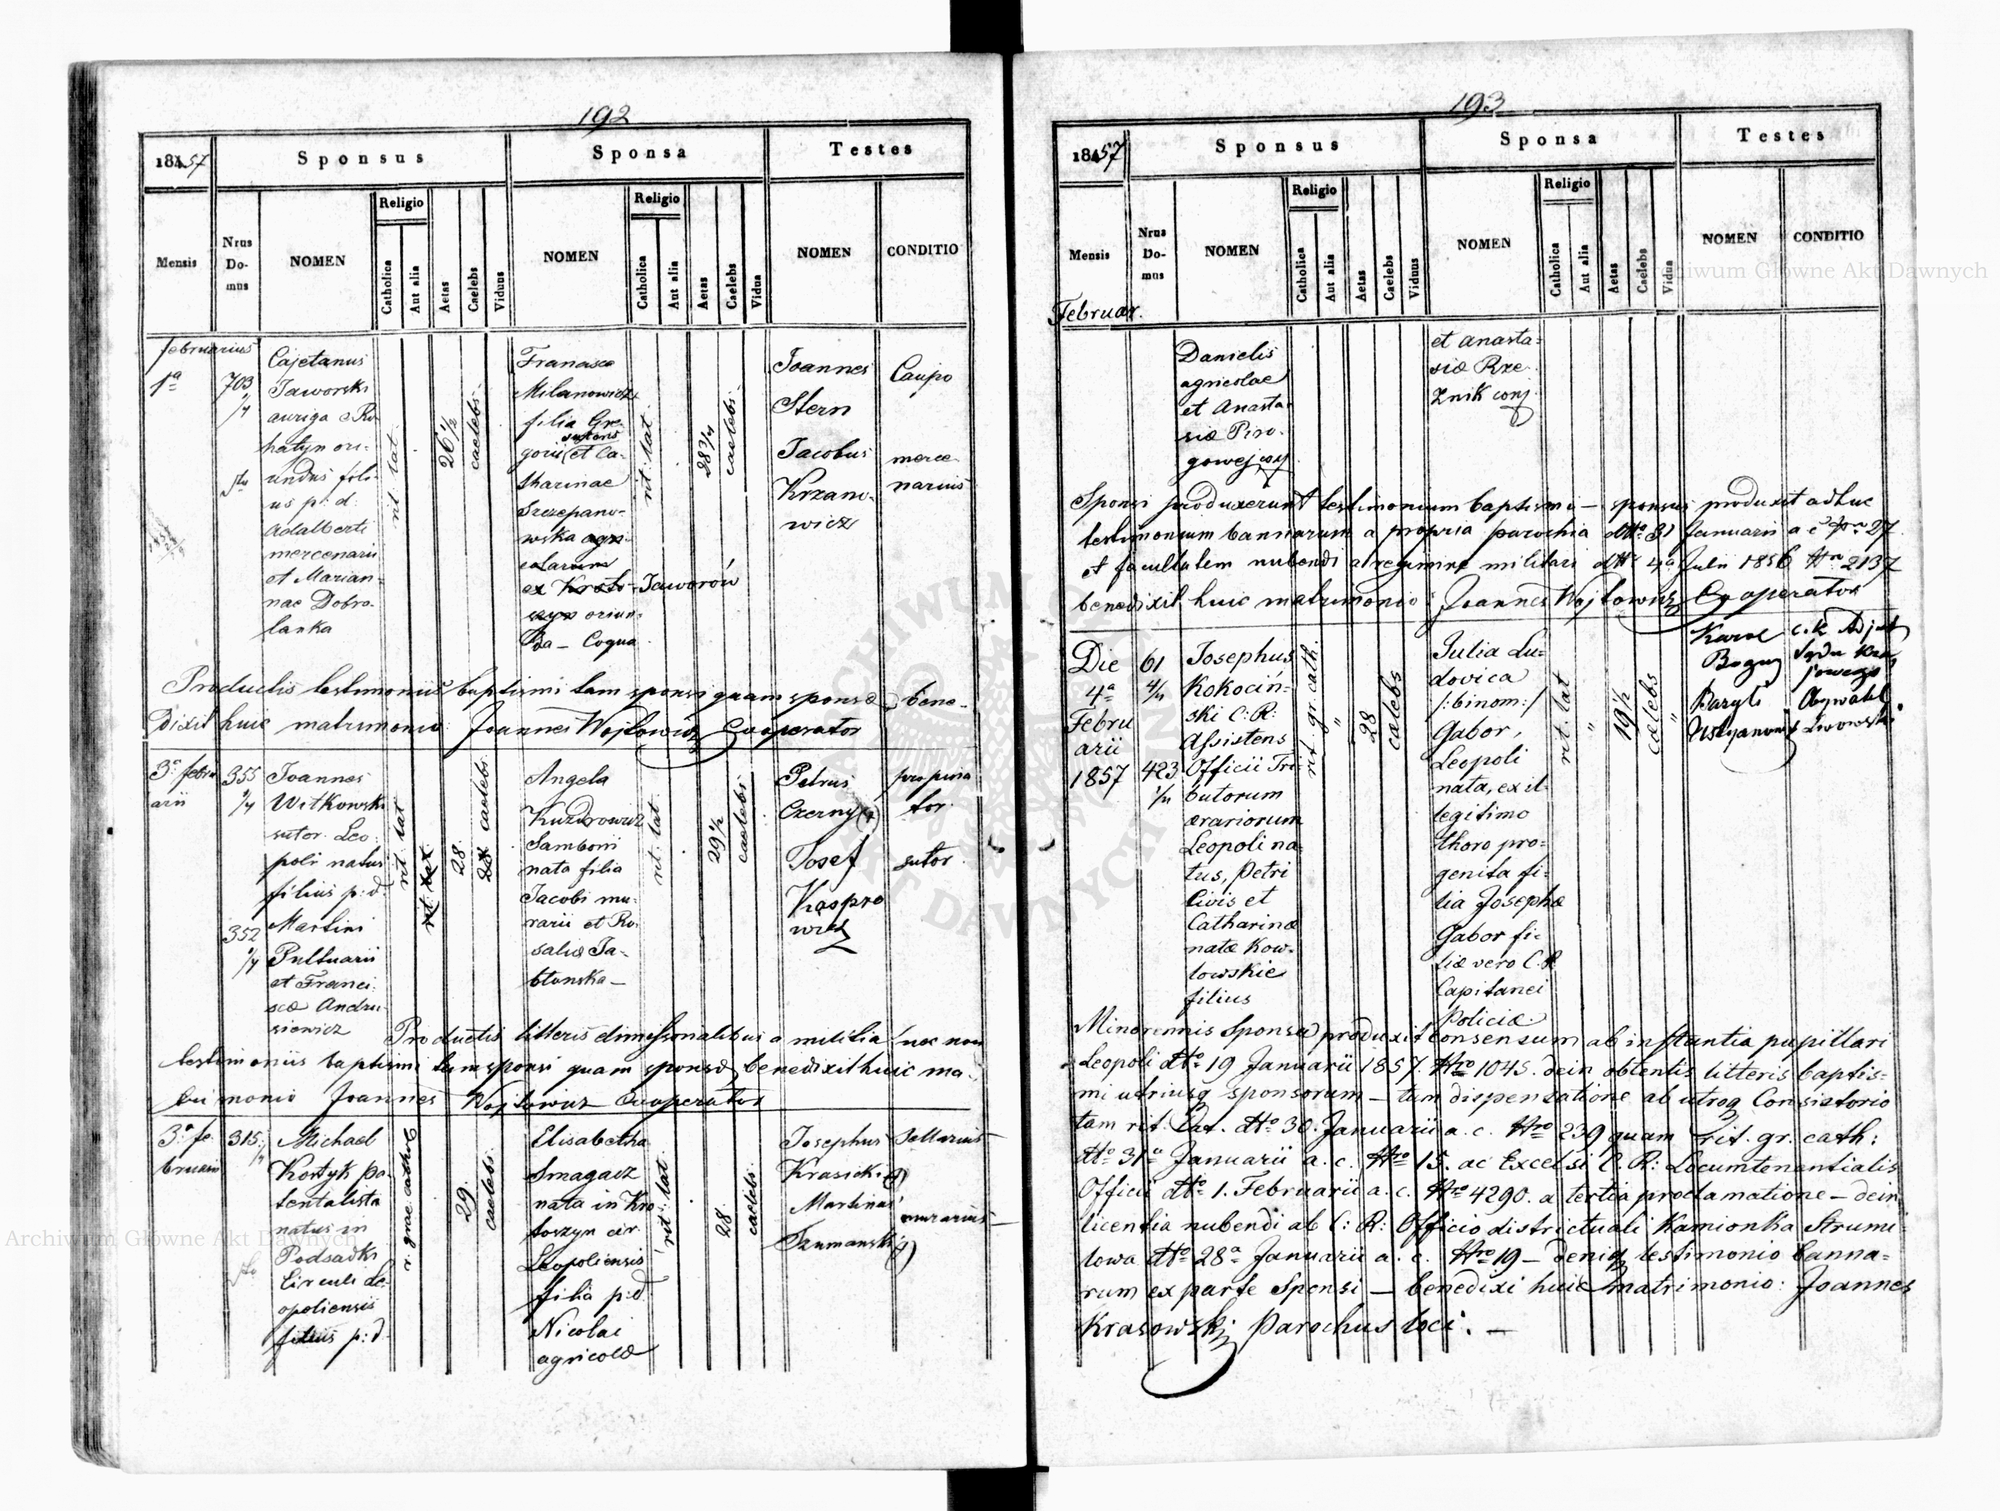 192
1857
Sponsus
Sponsa
Testes
Mensis
Nrus Do- mus
NOMEN
Religio
Catholica
Aut alia
Aetas
Caelebs
Viduus
NOMEN
Religio
Catholica
Aut alia
Aetas
Caelebs
Vidua
NOMEN
CONDITIO
februarius
1a
703
1/4
Cajetanus
Jaworski
auriga e Ro
hatyn ori-
undus fili-
us p: d.
Adalberti
mercenarii
et Marian-
nae Dobro-
lanka
rit. lat
26 1/2
caelebs
Francisca
Milanowicz
filia Gre-
gorii et Ca-
tharinae
Szczepano-
wska
Jaworów
oriun-
da - Coqua
rit. lat
28 3/4
caelebs
Joannes
Stern
Caupo
Jacobus
Krzano-
wicz
merce-
narius
Productis testimoniis baptismi tam sponsi quam sponsae, bene-
dixit huic matrimonio: Joannes Wojtowicz Cooperator
3a febru
arii
355
1/4
352
1/4
Joannes
Witkowski
sutor. Leo
poli natus
filius p: d.
Martini
Pultuarii
et Franci
scae Andru-
siewicz
rit. lat
28
caelebs
Angela
Kuzdrowicz
Sambori
nata filia
Jacobi mu-
rarii et Ro-
salia Ja-
błonska -
rit. lat
29 1/2
caelebs
Petrus
Czerny
propina
tor
Josef
Kaspro
wicz
sutor
Productis litteris dimissionalibus a militia nec non
testimoniis baptismi tam sponsi quam sponsae, benedixit huic ma-
trimonio Joannes Wojtowicz Cooperator
3a fe
bruarii
315
1/4
Michael
Kostyk pa
tentalista
natus in
Podsadki
Circuli Le
opoliensis
filius p: d.
r. graec. cathol
29
caelebs
Elisabetha
Smagacz
nata in Kro
toszyn cir
Leopoliensis
filia p: d.
Nicolai
agricolae
rit. lat
28
caelebs
Josephus
Krasicki
Martinus
Szumanski
murarius
193
1857
Sponsus
Sponsa
Testes
Mensis
Nrus Do- mus
NOMEN
Religio
Catholica
Aut alia
Aetas
Caelebs
Viduus
NOMEN
Religio
Catholica
Aut alia
Aetas
Caelebs
Vidua
NOMEN
CONDITIO
Februar.
Danielis
agricolae
et Anasta-
siae Piro-
gowej conj
et Anasta-
siae Rze
znik conj.
Sponsi produxerunt testimonium baptismi - sponsus produxit adhuc
testimonium bannorum a propria parochia dtto 31 Januarii a c Nro 27
et facultatem nubendi a regimine militari dtto 4a Julii 1856 Nro 2137
benedixit huic matrimonio: Joannes Wojtowicz Cooperator
Die
4a
Febru
arii
1857
61
4/4
423
1/4
Josephus
Kokociń-
ski C: R:
Assistens
Officii Tri-
butorum
aerariorum
Leopoli na-
tus, Petri
Civis et
Catharinae
natae Kow-
lowskie
filius
rit. gr. cath.
"
28
caelebs
Julia Lu-
dovica
/: binom :/
Gabor,
Leopoli
nata, ex il-
legitimo
thoro pro-
genita fi-
lia Josephae
Gabor fi-
liae vero C. R
Capitanei
Policiae.
rit. lat
"
19 1/2
caelebs
Karol
Boguz
c. k. Adjukt
Sądu Kra
jowego
Baryli
Ustyanowicz
Obywatel
Lwowski
Minorennis Sponsa produxit Consensum ab instantia pupillari
Leopoli dtto 19 Januarii 1857. Nro 1045. dein obtentis litteris baptis-
mi utriusq sponsorum - tum dispensatione ab utroq Consistorio
tam rit. Lat. dtto 30. Januarii a. c. Nro 239 quam rit. gr. cath:
dtto 31a Januarii a. c. Nro 15. ac Excelsi C. R: Locumtenentialis
Officii dtto 1. Februarii a. c. Nro 4290. a tertia proclamatione - dein
licentia nubendi ab C: R: Officio districtuali Kamionka Strumi-
lowa dtto 28a Januarii a. c. Nro 19 - deniq testimonio banno-
rum ex parte Sponsi - benedixi huic matrimonio: Joannes
Krasowski Parochus loci. -
Archiwum Główne Akt Dawnych
Archiwum Główne Akt Dawnych